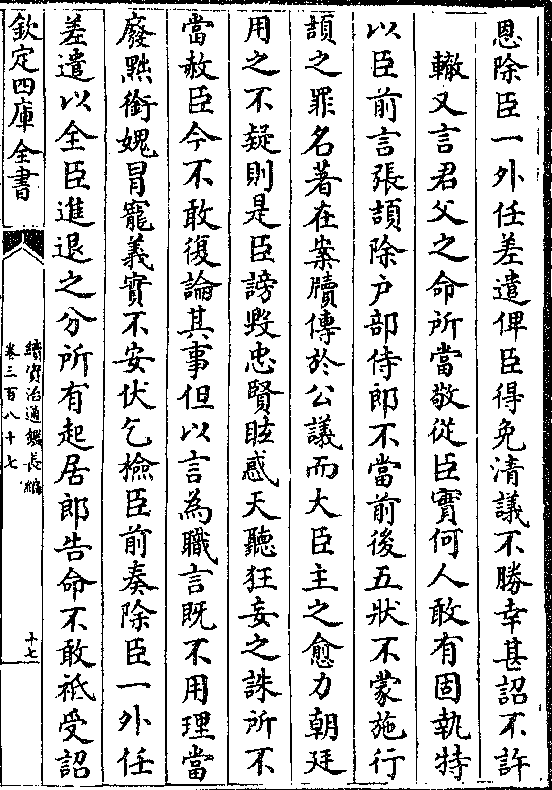 恩除臣一外任差遣俾臣得免清議不勝幸甚詔不許
轍又言君父之命所當敬從臣實何人敢有固執特
以臣前言張頡除户部侍郎不當前後五狀不蒙施行
頡之罪名著在案牘傳於公議而大臣主之愈力朝廷
用之不疑則是臣謗毁忠賢眩惑天聽狂妄之誅所不
當赦臣今不敢復論其事但以言為職言既不用理當
廢黜銜媿冒寵義實不安伏乞檢臣前奏除臣一外任
差遣以全臣進退之分所有起居郎告命不敢祗受詔
欽定四庫全書
續資治通鑑長編
卷三百八十七
十七